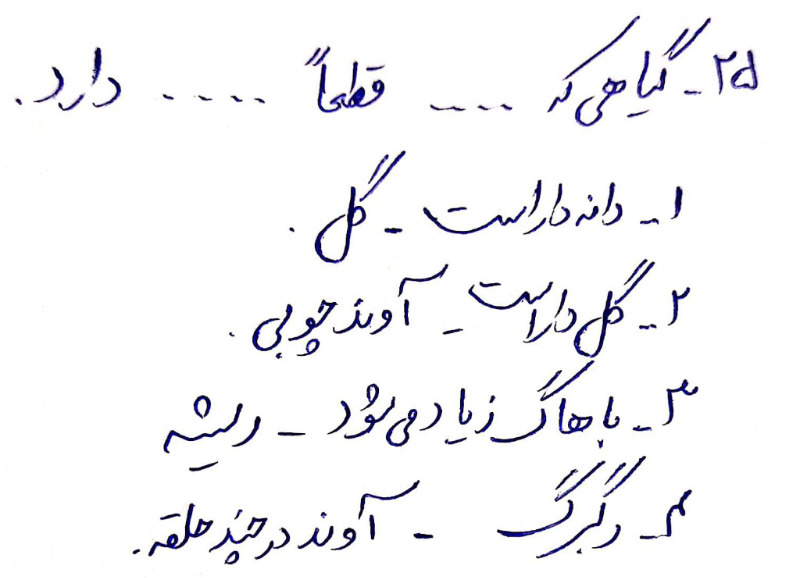 ۲۵- گیاهی که .... قطعاً .... دارد.
۱- دانه دار است - گل .
۲- گل دار است - آوند چوبی .
۳- با هاگ زیاد می شود - ریشه
۴- رگبرگ - آوند در چند حلقه .